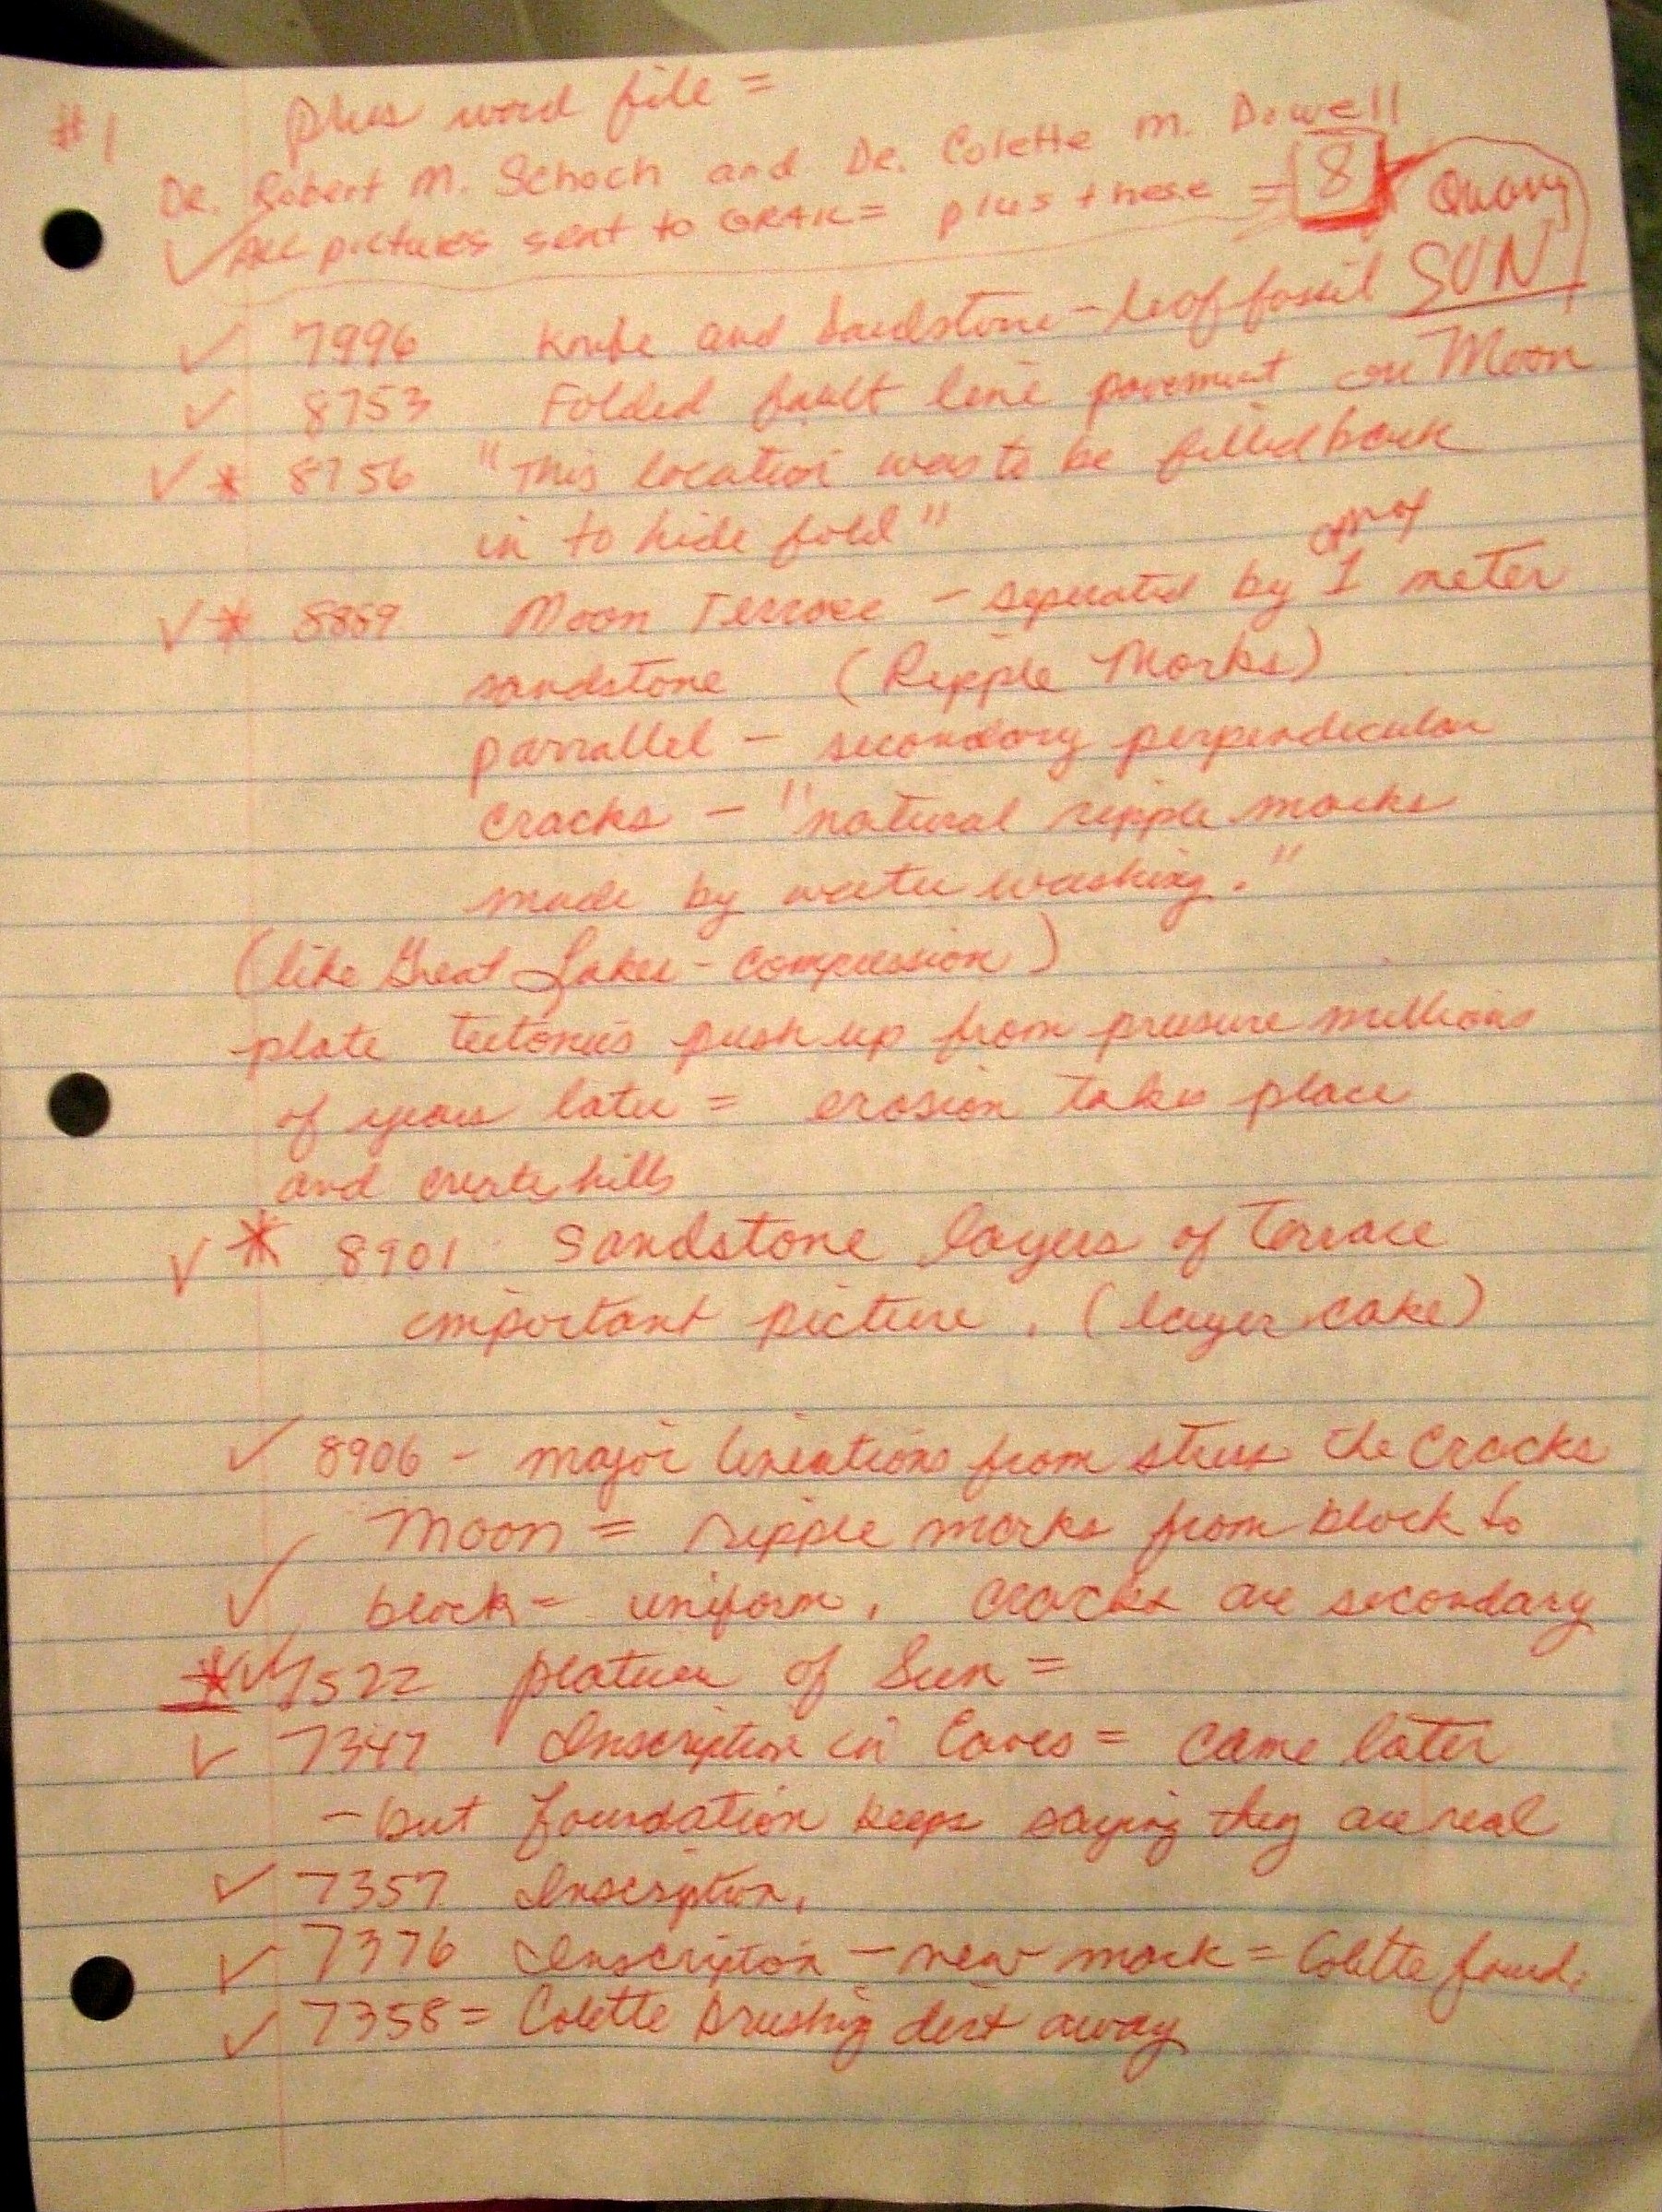 #1 plus word file =
Dr. Robert M. Schoch and Dr. Colette M. Dowell
✓ All pictures sent to GRAK = plus these = 8 Quarry
SUN
✓ 7996 Knife and Sandstone - leaf fossil
✓ 8753 Folded fault line pavement on Moon
✓ * 8756 "This location was to be filled back
in to hide fold"
✓ * 8889 Moon Terrace - seperated by 1 meter
sandstone (Ripple Marks)
parrallel - secondary perpendicular
cracks - "natural ripple marks
made by water washing."
(like Great Lakes - compression)
plate tectonics push up from pressure millions
of years later = erosion takes place
and creates hills
✓ * 8901 Sandstone layers of Terrace
important picture. (layer cake)
✓ 8906 - major lineations from stress the cracks
Moon = ripple marks from block to
✓ block = uniform, cracks are secondary
* ✓ 7522 platuea of Sun =
✓ 7347 Inscription in Caves = came later
- but foundation keeps saying they are real
✓ 7357 Inscription,
✓ 7376 Inscription - new mark = Colette found.
✓ 7358 = Colette brushing dirt away